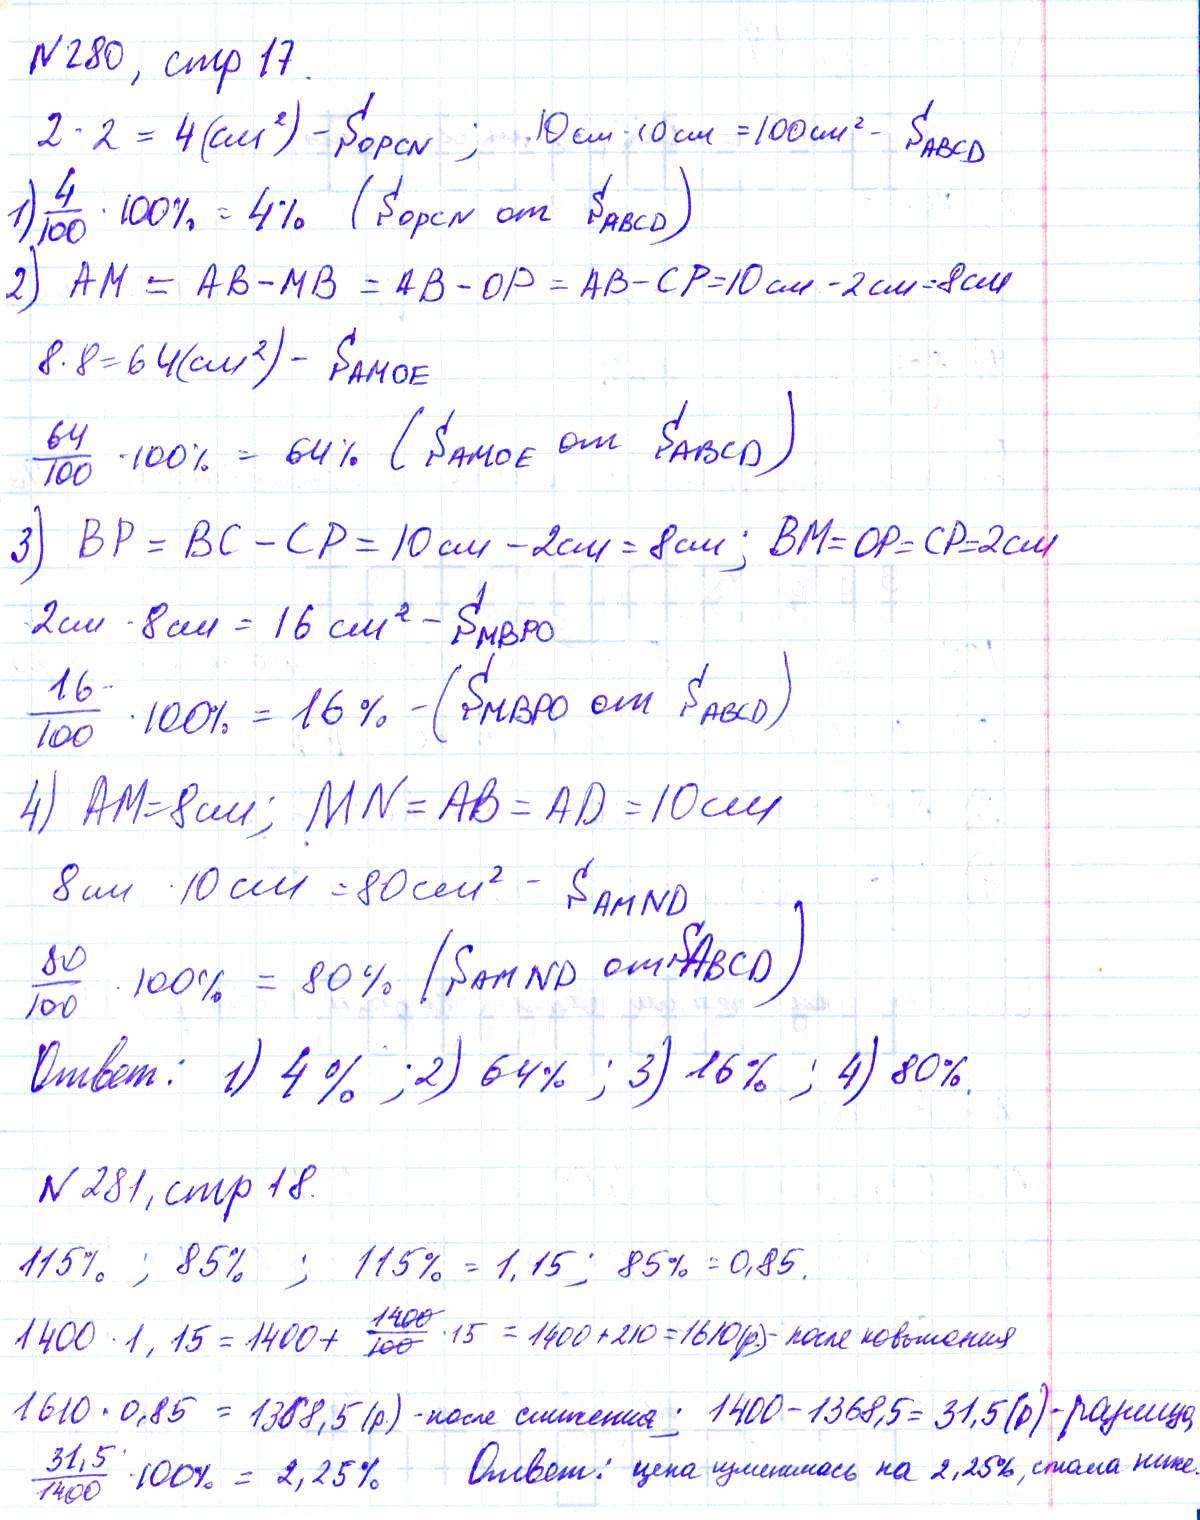 N 280, стр 17.
2 · 2 = 4(см²) - S_OPCN ; 10 см · 10 см = 100 см² - S_ABCD
1) 4/100 · 100% = 4% (S_OPCN от S_ABCD)
2) AM = AB - MB = AB - OP = AB - CP = 10 см - 2 см = 8 см
8 · 8 = 64(см²) - S_AMOE
64/100 · 100% = 64% (S_AMOE от S_ABCD)
3) BP = BC - CP = 10 см - 2 см = 8 см ; BM = OP = CP = 2 см
2 см · 8 см = 16 см² - S_MBPO
16/100 · 100% = 16% - (S_MBPO от S_ABCD)
4) AM = 8 см ; MN = AB = AD = 10 см
8 см · 10 см = 80 см² - S_AMND
80/100 · 100% = 80% (S_AMND от S_ABCD)
Ответ: 1) 4% ; 2) 64% ; 3) 16% ; 4) 80%.
N 281, стр 18.
115% ; 85% ; 115% = 1,15 ; 85% = 0,85.
1400 · 1,15 = 1400 + 1400/100 · 15 = 1400 + 210 = 1610(р) - после повышения
1610 · 0,85 = 1368,5(р) - после снижения ; 1400 - 1368,5 = 31,5(р) - разница
31,5/1400 · 100% = 2,25% Ответ: цена изменилась на 2,25%, стала ниже.